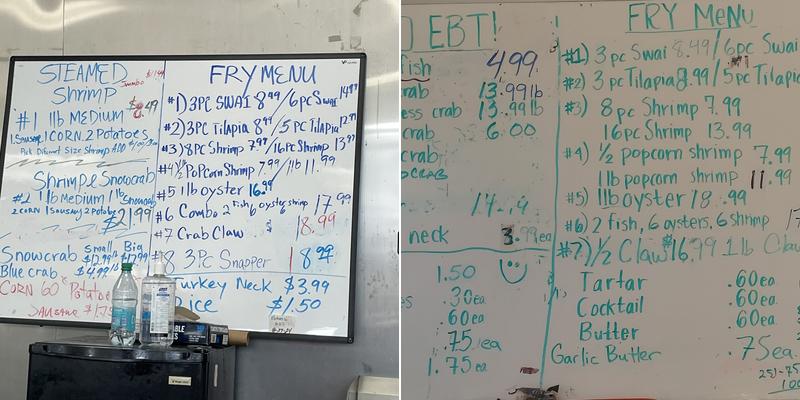 STEAMED
Shrimp
#1 1lb MEDIUM
1 Sausage 1 CORN 2 Potatoes
Shrimp & Snowcrab
#2 1lb Medium / 1lb Snowcrab
2 CORN 1 Sausage 2 Potatoes
$21.99
Small Big
Snowcrab $12.99lb $17.99
Blue crab $4.99lb
CORN 60¢ Potatoe
Sausage $1.75
FRY MENU
#1) 3PC SWAI 8.49 / 6pc Swai 14.99
#2) 3PC Tilapia 8.99 / 5PC Tilapia 12.99
#3) 8pc Shrimp 7.99 / 16pc Shrimp 13.99
#4 1/2 PopCorn Shrimp 7.99 / 1lb 11.99
#5 1lb oyster 16.99
#6 Combo 2 fish, 6 oyster, 6 shrimp 17.99
#7 Crab Claw 18.99
#8 3PC Snapper 18.99
Turkey Neck $3.99
Rice $1.50
EBT!
fish 4.99
crab 13.99lb
ess crab 13.99lb
crab 6.00
neck 3.99ea
1.50
.30ea
60ea
.75/ea
1.75ea
FRY MeNu
#1) 3pc Swai 8.49/6pc Swai
#2) 3pc Tilapia 8.99/5pc Tilapia
#3) 8pc Shrimp 7.99
16pc Shrimp 13.99
#4) 1/2 popcorn shrimp 7.99
1lb popcorn shrimp 11.99
#5) 1lb oyster 18.99
#6) 2 fish, 6 oysters, 6 shrimp 17
#7) 1/2 Claw $16.99 1lb Claw
Tartar .60ea
Cocktail .60ea
Butter .60ea
Garlic Butter .75ea